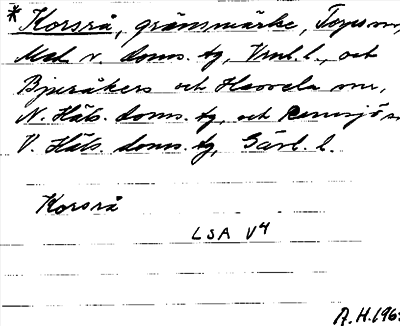 *Korsrå, gränsmärke, Torps sn,
Med. v. doms. tg, Vnrl. l., och
Bjuråkers och Hassela snr,
N. Häls. doms. tg, och Ramsjö s
V. Häls. doms. tg, Gävl. l.
Korsrå
LSA V4
A.H.196